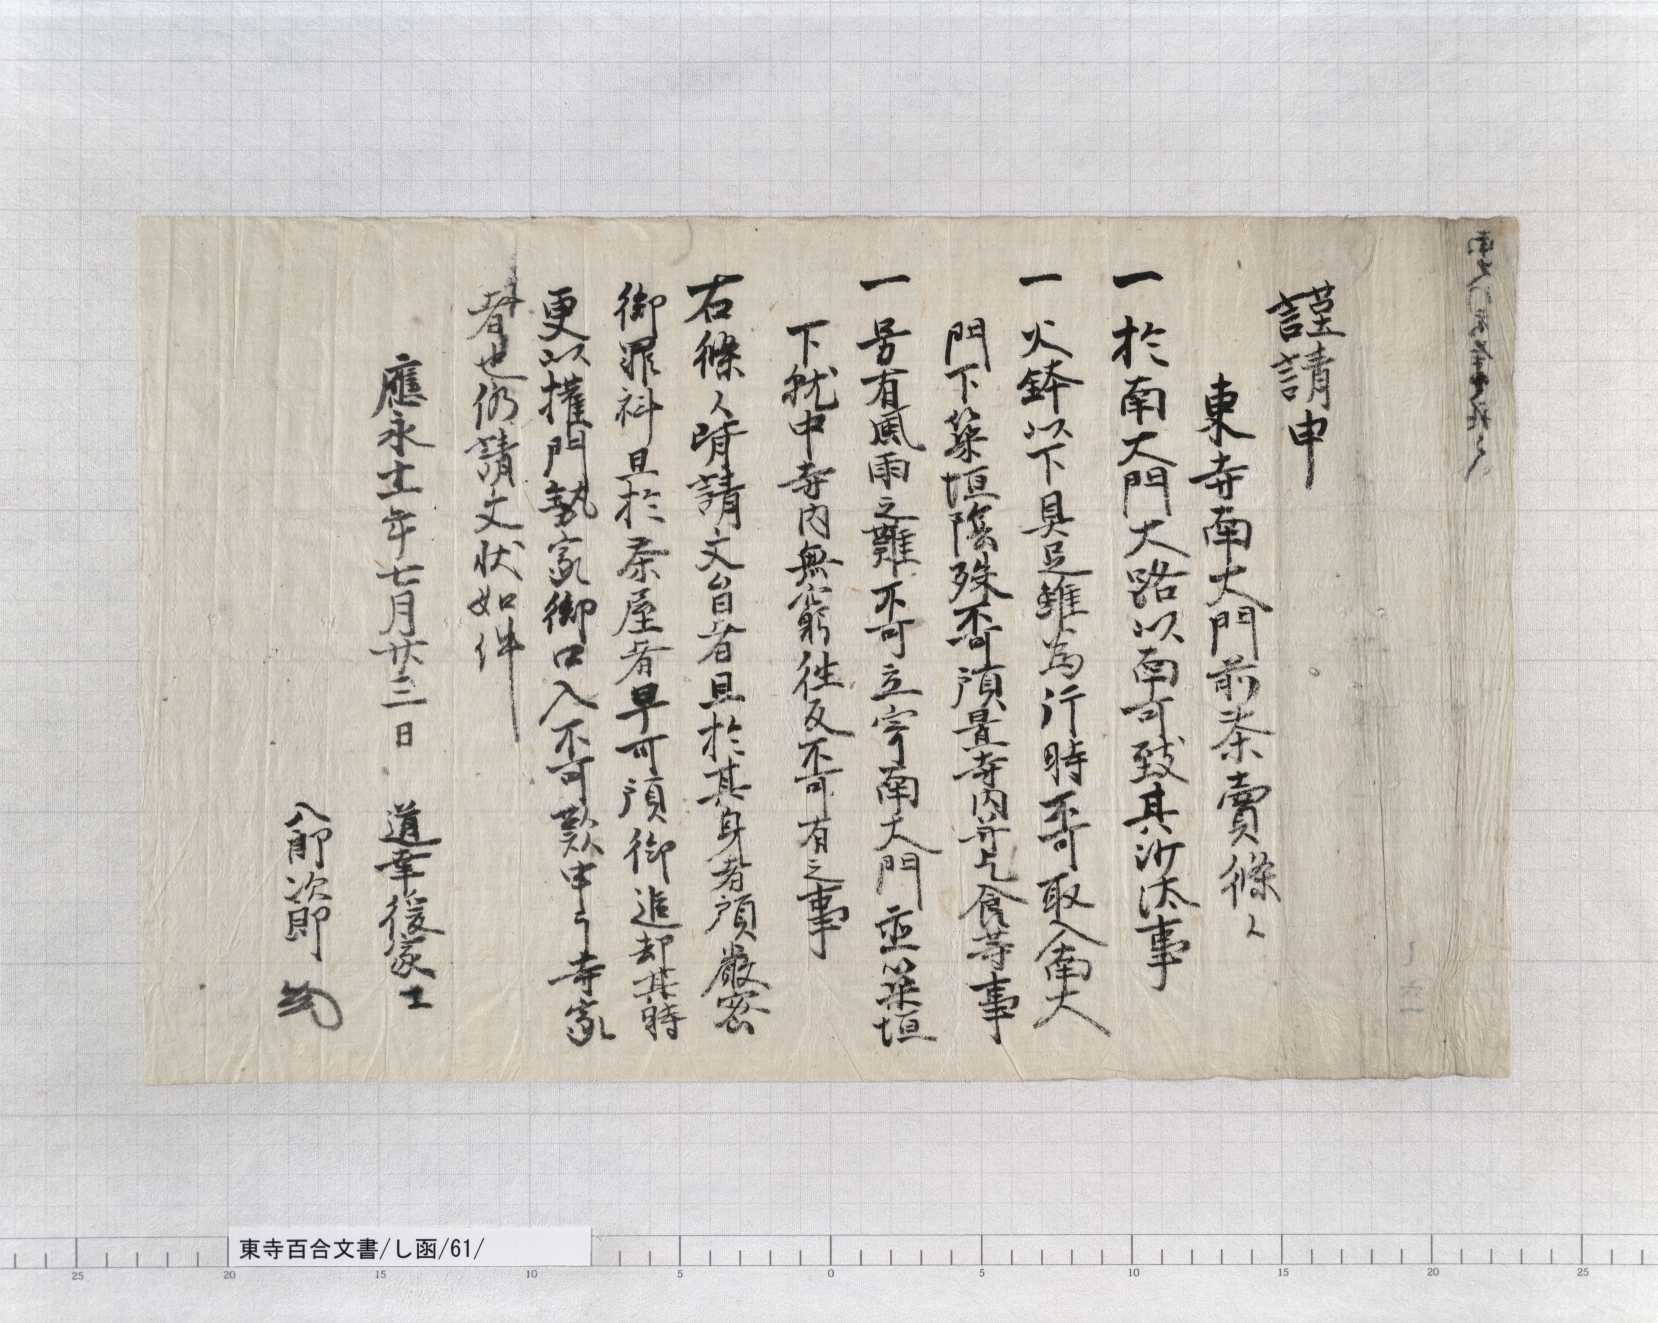 謹請申
東寺南大門前茶賣條々
一於南大門大路以南可致其沙汰事
一火鉢以下具足雖為片時不可取入南大
門下築垣陰殊不可預置寺内等
一号有風雨之難不可立寄南大門並築垣
下就中寺内無窮往反不可有之事
右條々背請文旨者且於其身者預嚴密
御罪科且於茶屋者早可預御追却其時
更以權門勢家御口入不可歎申寺家
者也仍請文状如件
應永十一年七月廿三日 道幸後家
八郎次郎
東寺百合文書/し函/61/
25 20 15 10 5 0 5 10 15 20 25